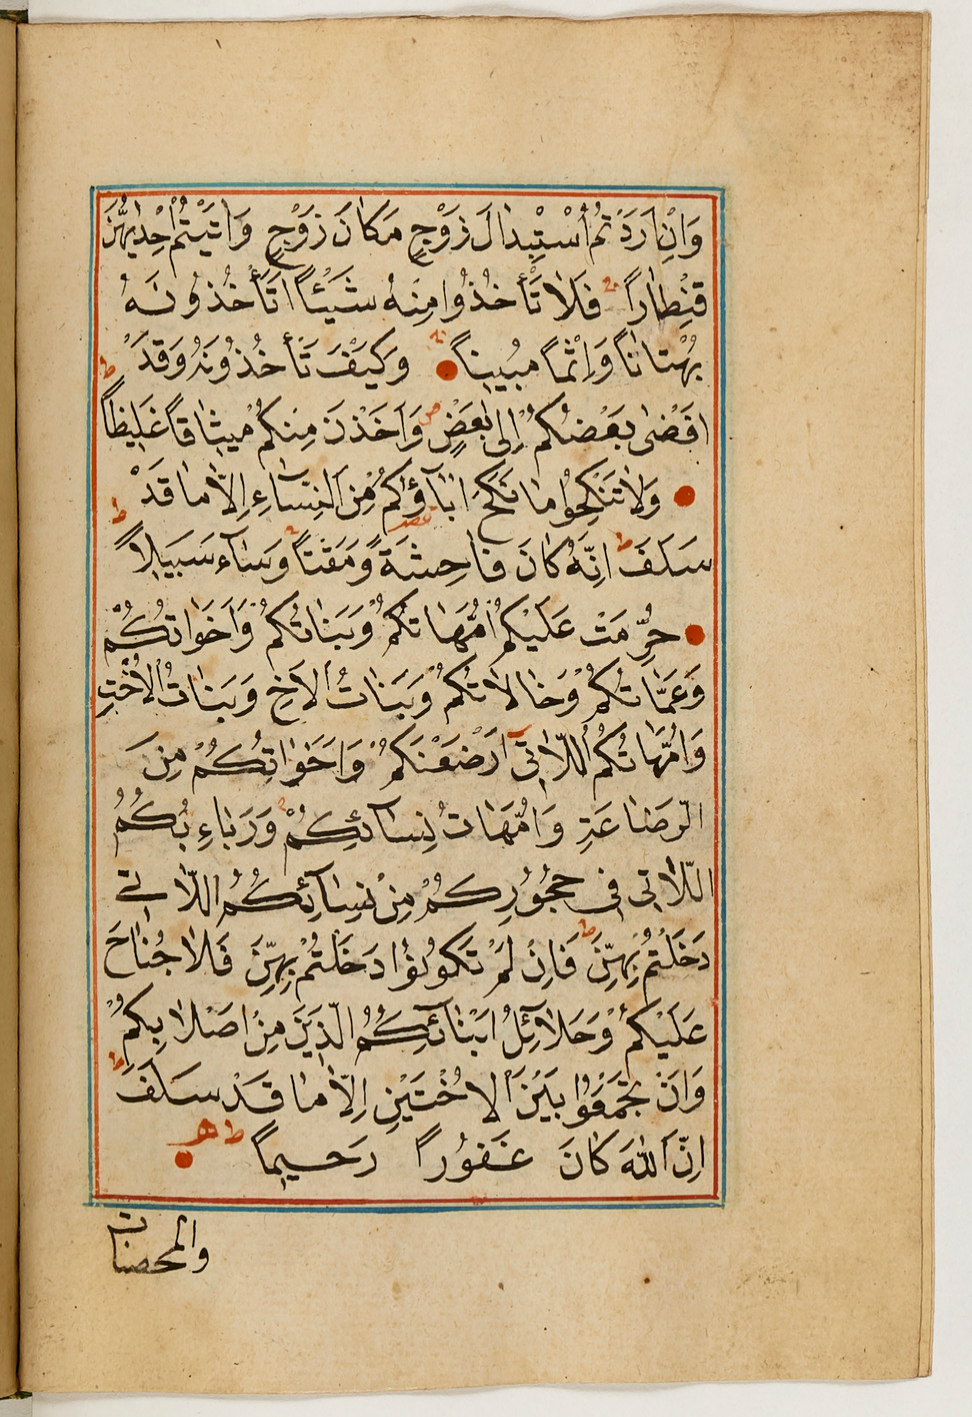 وَاِنْ اَرَدْتُمُ اسْتِبْدَالَ زَوْجٍ مَكَانَ زَوْجٍ وَاٰتَيْتُمْ اِحْدٰيهُنَّ
قِنْطَاراً فَلَا تَأْخُذُوا مِنْهُ شَيْئاً اَتَأْخُذُونَهُ
بُهْتَاناً وَاِثْماً مُبِيناً وَكَيْفَ تَأْخُذُونَهُ وَقَدْ
اَفْضٰى بَعْضُكُمْ اِلٰى بَعْضٍ وَاَخَذْنَ مِنْكُمْ مِيثَاقاً غَلِيظاً
وَلَا تَنْكِحُوا مَا نَكَحَ اٰبَآؤُكُمْ مِنَ النِّسَآءِ اِلَّا مَا قَدْ
سَلَفَ اِنَّهُ كَانَ فَاحِشَةً وَمَقْتاً وَسَآءَ سَبِيلاً
حُرِّمَتْ عَلَيْكُمْ اُمَّهَاتُكُمْ وَبَنَاتُكُمْ وَاَخَوَاتُكُمْ
وَعَمَّاتُكُمْ وَخَالَاتُكُمْ وَبَنَاتُ الْاَخِ وَبَنَاتُ الْاُخْتِ
وَاُمَّهَاتُكُمُ اللَّاتِى اَرْضَعْنَكُمْ وَاَخَوَاتُكُمْ مِنَ
الرَّضَاعَةِ وَاُمَّهَاتُ نِسَائِكُمْ وَرَبَاءِبُكُمُ
اللَّاتِى فِى حُجُورِكُمْ مِنْ نِسَائِكُمُ اللَّاتِى
دَخَلْتُمْ بِهِنَّ فَاِنْ لَمْ تَكُونُوا دَخَلْتُمْ بِهِنَّ فَلَا جُنَاحَ
عَلَيْكُمْ وَحَلَآئِلُ اَبْنَآئِكُمُ الَّذِينَ مِنْ اَصْلَابِكُمْ
وَاَنْ تَجْمَعُوا بَيْنَ الْاُخْتَيْنِ اِلَّا مَا قَدْ سَلَفَ
اِنَّ اللّٰهَ كَانَ غَفُوراً رَحِيماً
والمحصنات